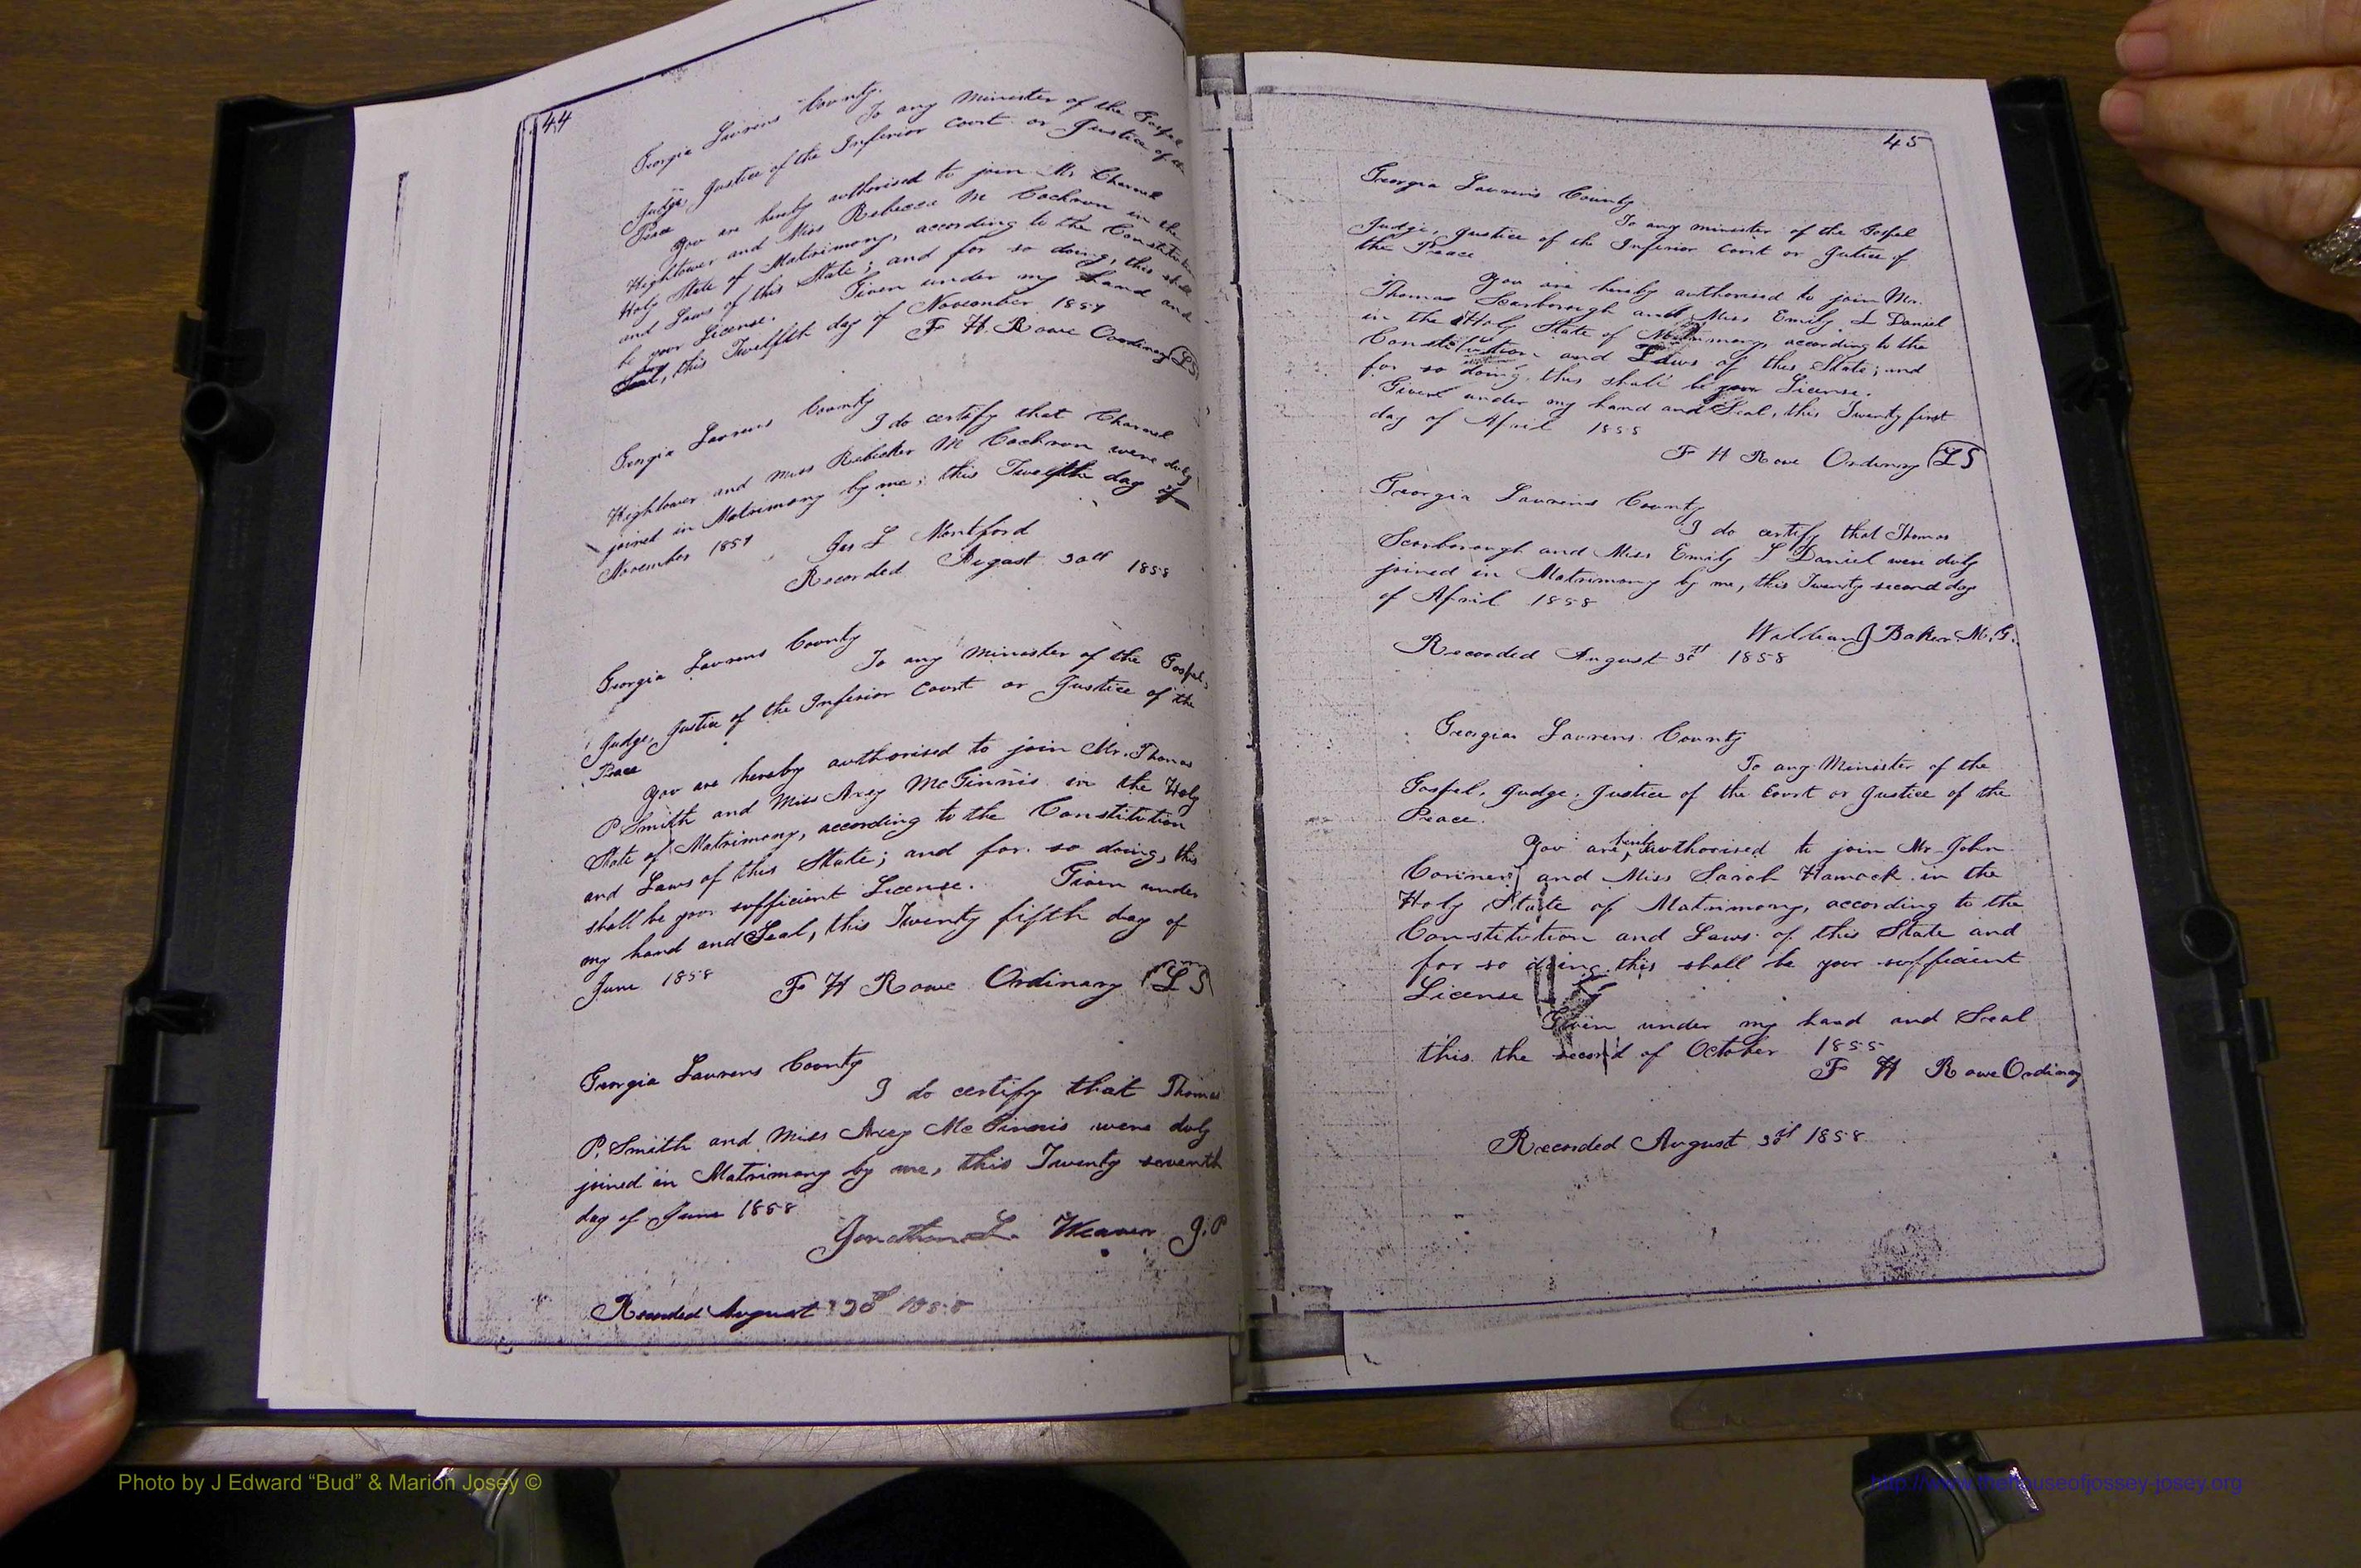 44
Georgia Laurens County.
To any Minister of the Gospel
Judge, Justice of the Inferior Court or Justice of the
Peace
You are hereby authorised to join Mr Charnel
Hightower and Miss Rebecca M Cochron in the
Holy State of Matrimony, according to the Constitution
and Laws of this State; and for so doing, this shall
be your License. Given under my hand and
Seal, this Twelfth day of November 1857
F H Rowe Ordinary (LS)
Georgia Laurens County
I do certify that Charnel
Hightower and Miss Rebecker M Cochron were duly
joined in Matrimony by me; this Twelfth day of
November 1857
Jas L Montford
Recorded August 30th 1858
Georgia Laurens County
To any Minister of the Gospel,
Judge, Justice of the Inferior Court or Justice of the
Peace
You are hereby authorised to join Mr. Thomas
P Smith and Miss Arey McGinnis in the Holy
State of Matrimony, according to the Constitution
and Laws of this State; and for so doing, this
shall be your sufficient License. Given under
my hand and Seal, this Twenty fifth day of
June 1858
F H Rowe Ordinary (LS)
Georgia Laurens County
I do certify that Thomas
P. Smith and Miss Arey McGinnis were duly
joined in Matrimony by me, this Twenty seventh
day of June 1858
Jonathan L. Weaver J.P
Recorded August 30th 1858
45
Georgia Laurens County
To any minister of the Gospel
Judge, Justice of the Inferior Court or Jutice of
the Peace
You are hereby authorised to join Mr.
Thomas Scarborough and Miss Emily L Daniel
in the Holy State of Matrimony, according to the
Constitution and Laws of this State; and
for so doing, this shall be your License.
Given under my hand and Seal, this Twenty first
day of April 1858
F H Rowe Ordinary (LS)
Georgia Laurens County
I do certify that Thomas
Scarborough and Miss Emily L Daniel were duly
joined in Matrimony by me, this Twenty second day
of April 1858
William J Baker M.G.
Recorded August 30th 1858
Georgia Laurens County
To any Minister of the
Gospel, Judge, Justice of the Court or Justice of the
Peace.
You are hereby authorised to join Mr John
and Miss Sarah Hamock in the
Holy State of Matrimony, according to the
Constitution and Laws of this State and
for so doing this shall be your sufficient
License
Given under my hand and Seal
this the second of October 1855
F H Rowe Ordinary
Recorded August 30th 1858
Photo by J Edward “Bud” & Marion Josey ©
http://www.thehouseofjossey-josey.org